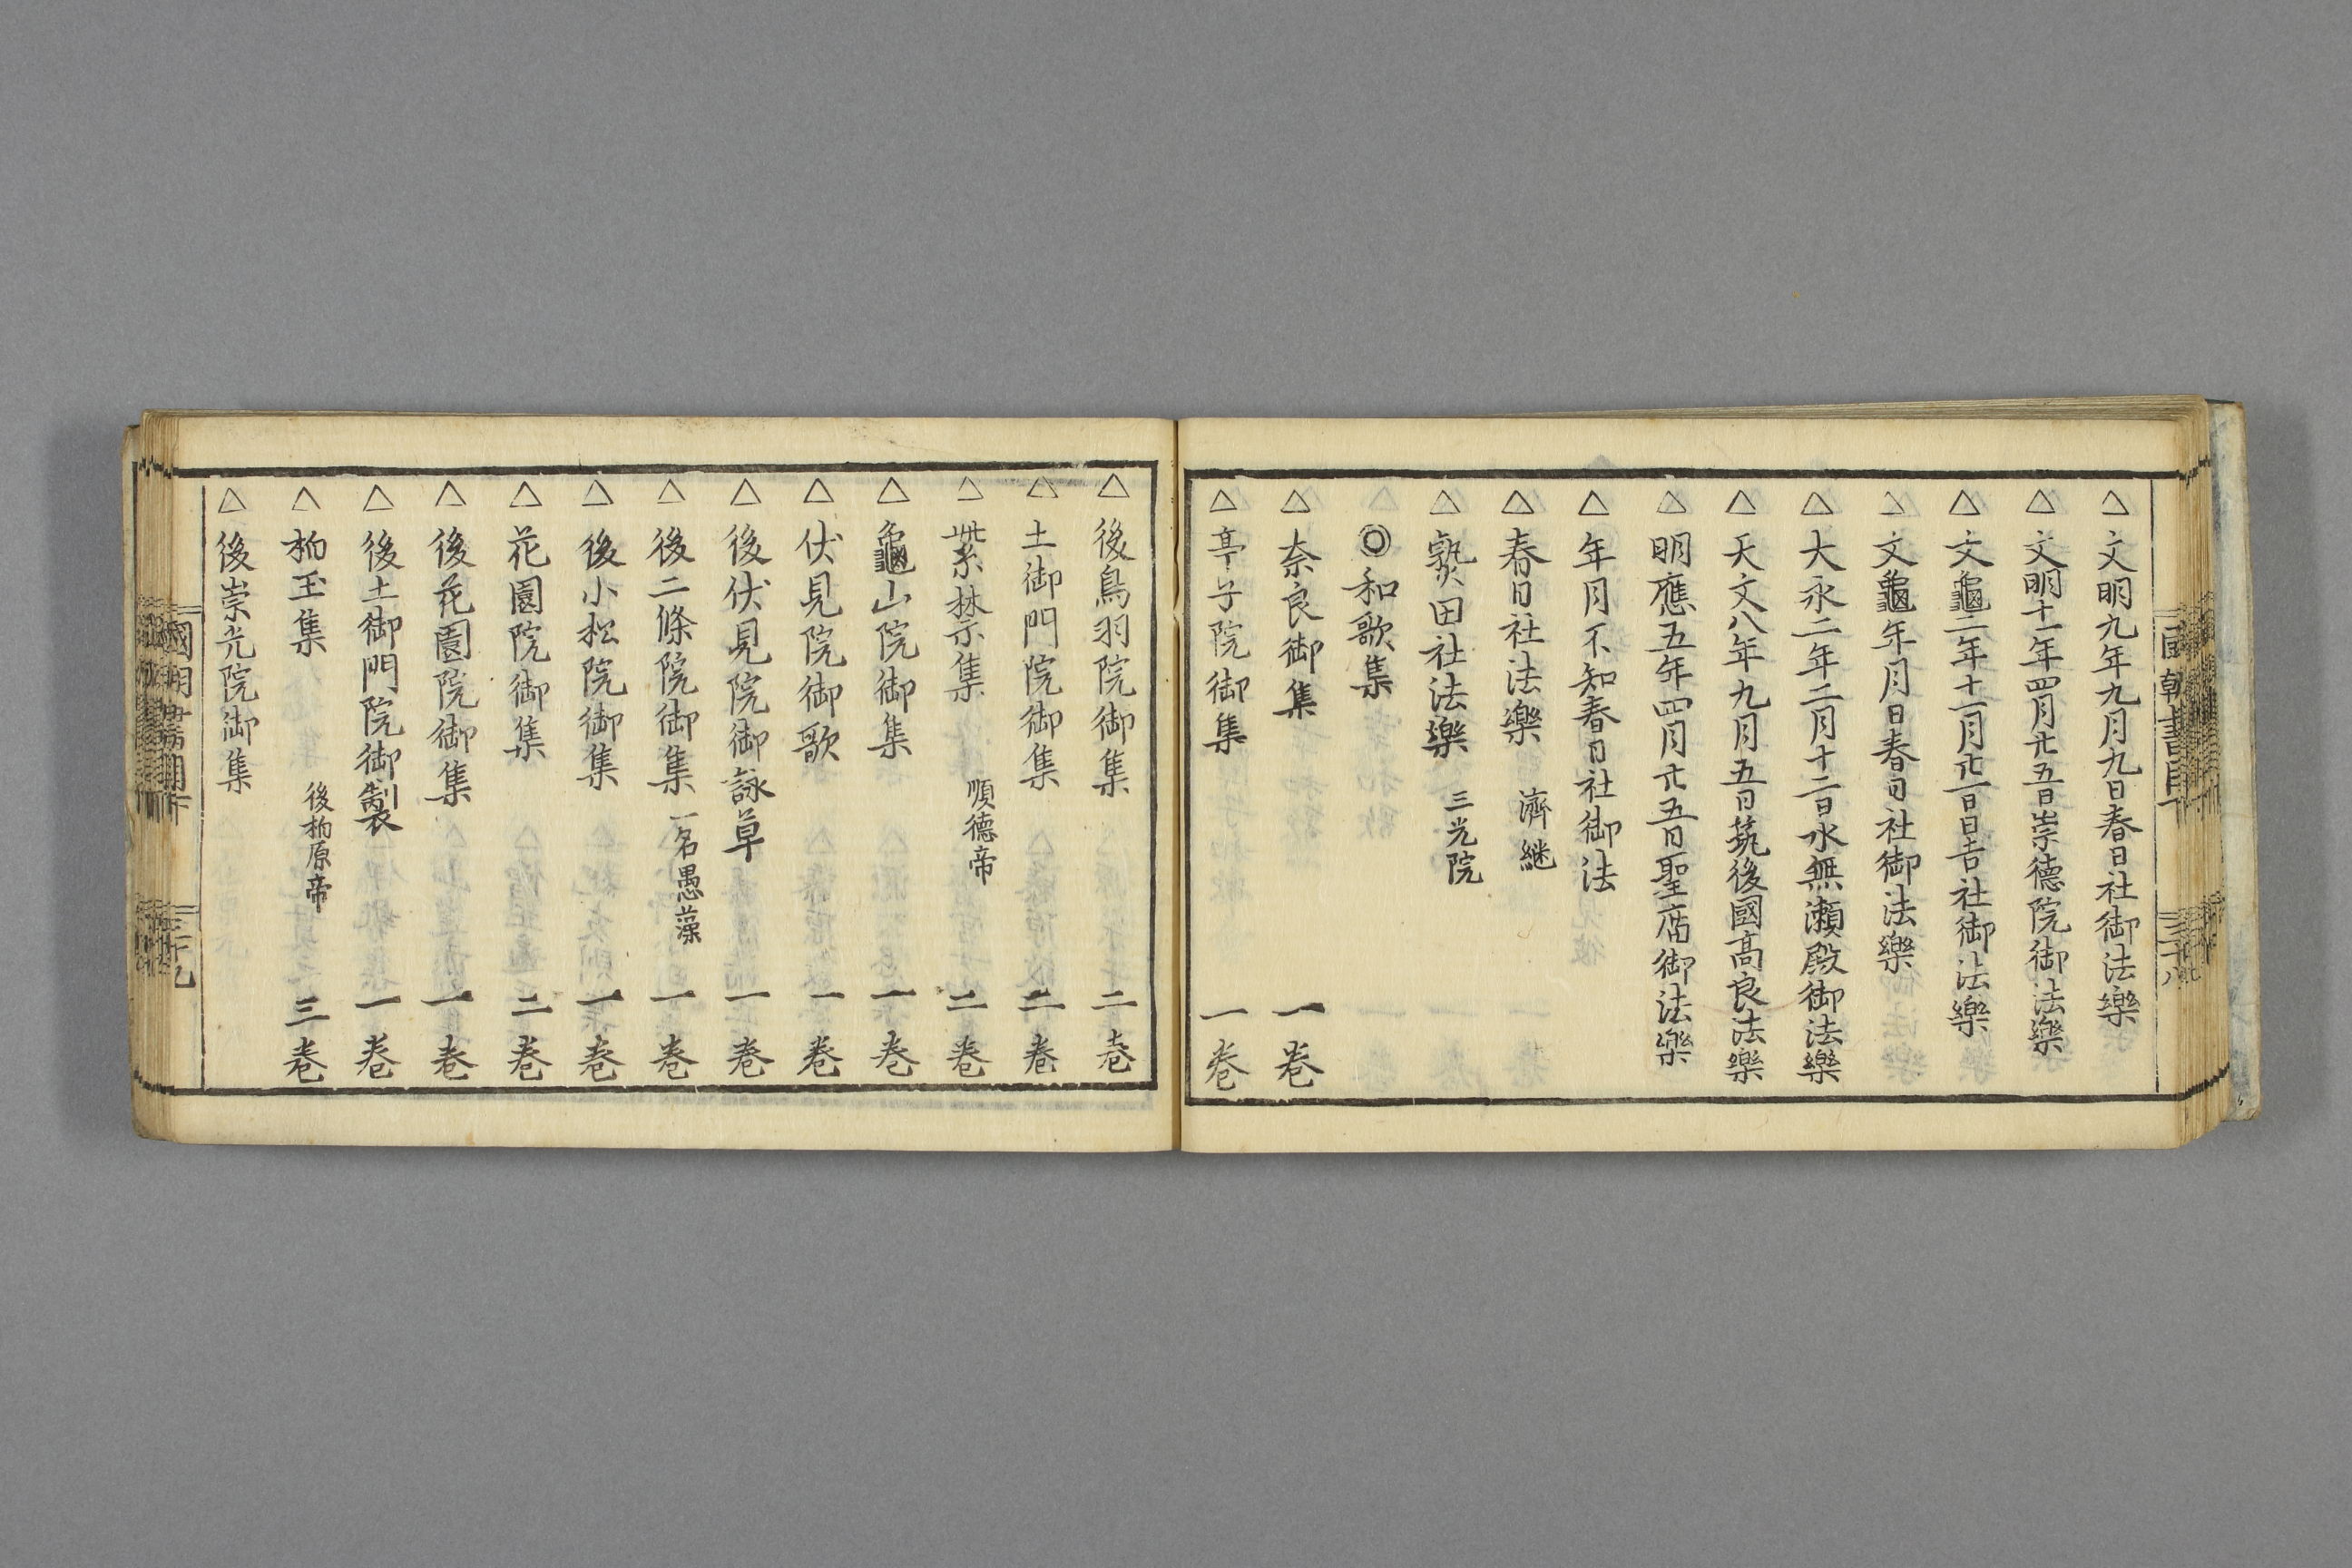 △文明九年九月九日春日社御法樂
△文明十一年四月廿五日崇德院御法樂
△文龜二年十一月廿一日日吉社御法樂
△文龜年月日春日社御法樂
△大永二年二月十二日水無瀬殿御法樂
△天文八年九月五日筑後國髙良法樂
△明應五年四月廿五日聖庿御法樂
△年月不知春日社御法
△春日社法樂 濟継
△熱田社法樂 三光院
◎和歌集
△奈良御集 一卷
△亭子院御集 一卷
△後鳥羽院御集 二卷
△土御門院御集 二卷
△紫禁集 順德帝 二卷
△龜山院御集 一卷
△伏見院御歌 一卷
△後伏見院御詠草 一卷
△後二條院御集 一名愚藻 一卷
△後小松院御集 一卷
△花園院御集 二卷
△後花園院御集 一卷
△後土御門院御製 一卷
△栢玉集 後栢原帝 三卷
△後崇光院御集